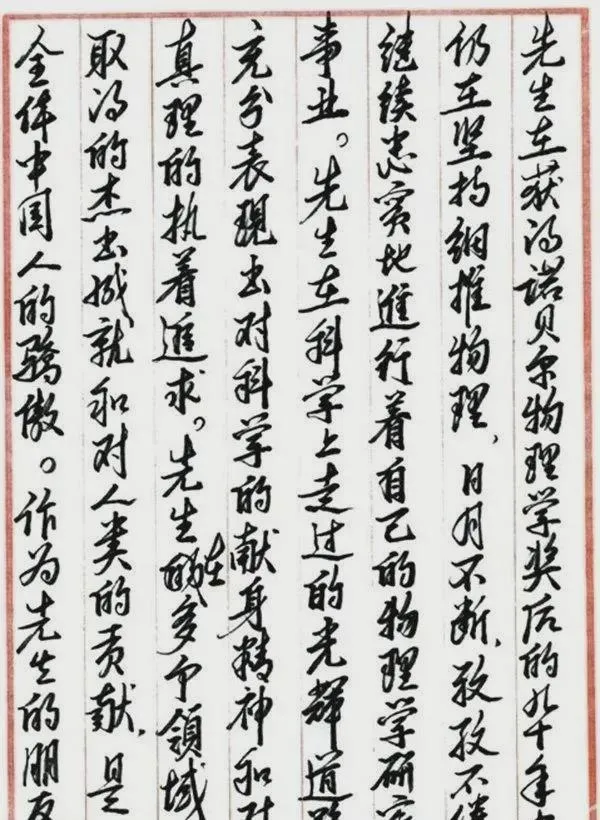 先生在获得诺贝尔物理学奖后的几十年
仍在坚持細推物理、日月不断,孜孜不
继续忠实地進行着自己的物理学研
事业。先生在科学上走过的光辉道
充分表現出对科学的献身精神和对
真理的执着追求。先生在多个領域
取得的杰出成就和对人类的贡献,是
全体中国人的骄傲。作为先生的朋友